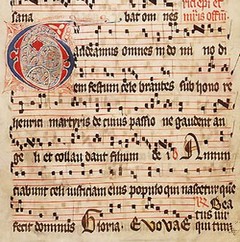 sana bat om nes
audeamus omnes in do mi no di
em festum cele brantes sub hono re
henrici martyris de cuius passio ne gaudent an
ge li et collau dant filium de i Annun
ciabunt celi iusticiam eius populo qui nascetur que
fecit dominus Gloria. EVOVAE
Bea
tus vir
qui tim